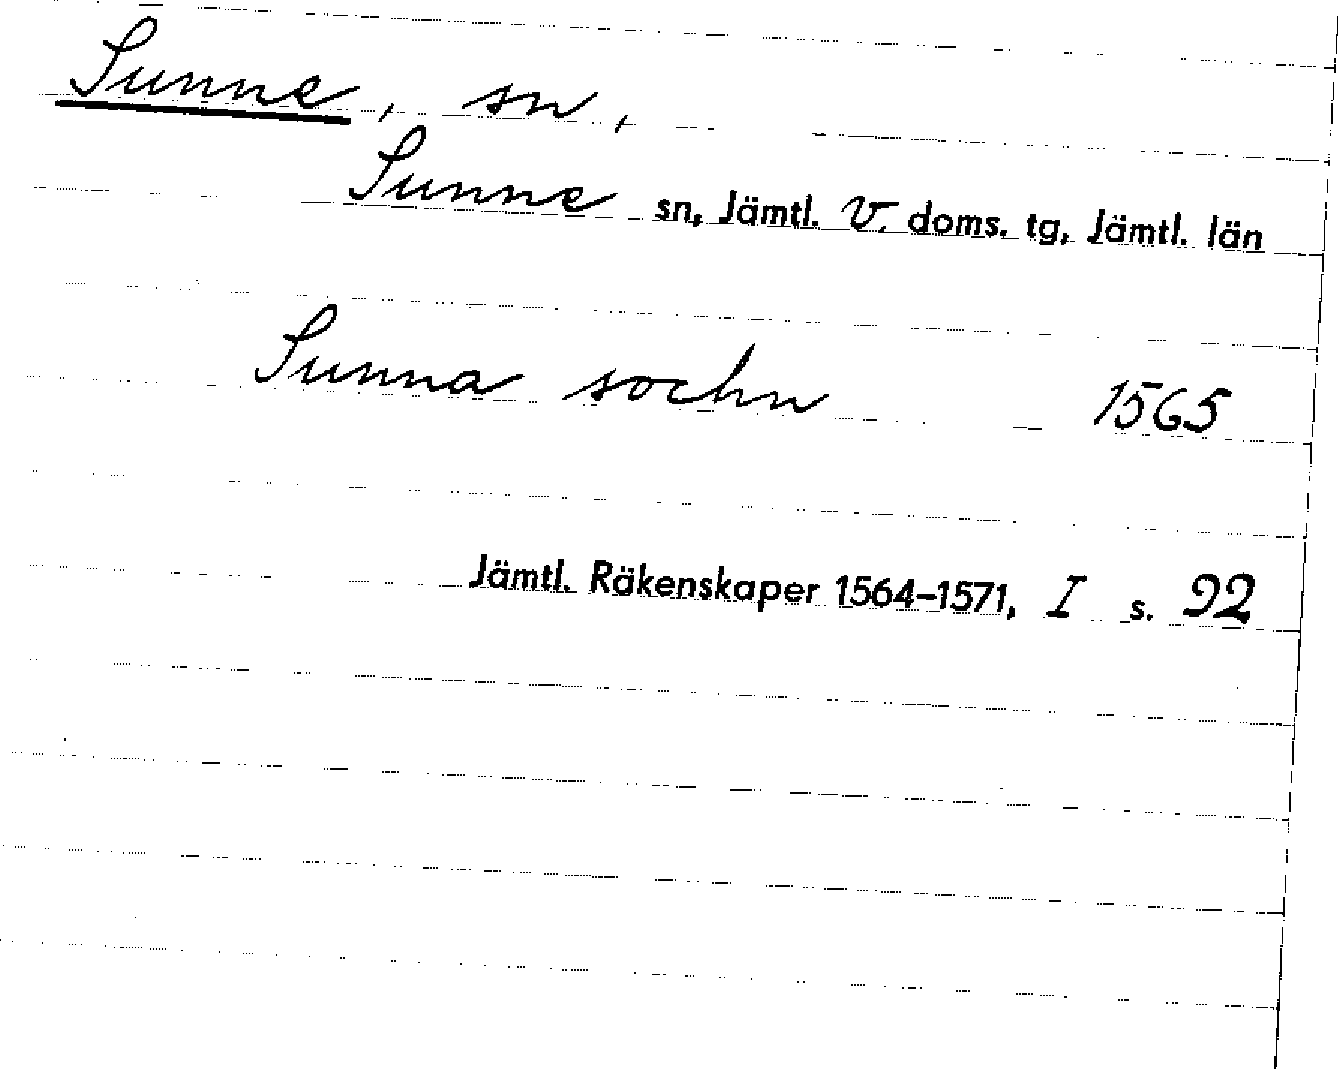 Sunne, sn,
Sunne sn, Jämtl. V. doms. tg, Jämtl. län
Sunna sochn 1565
Jämtl. Räkenskaper 1564–1571, I s. 92